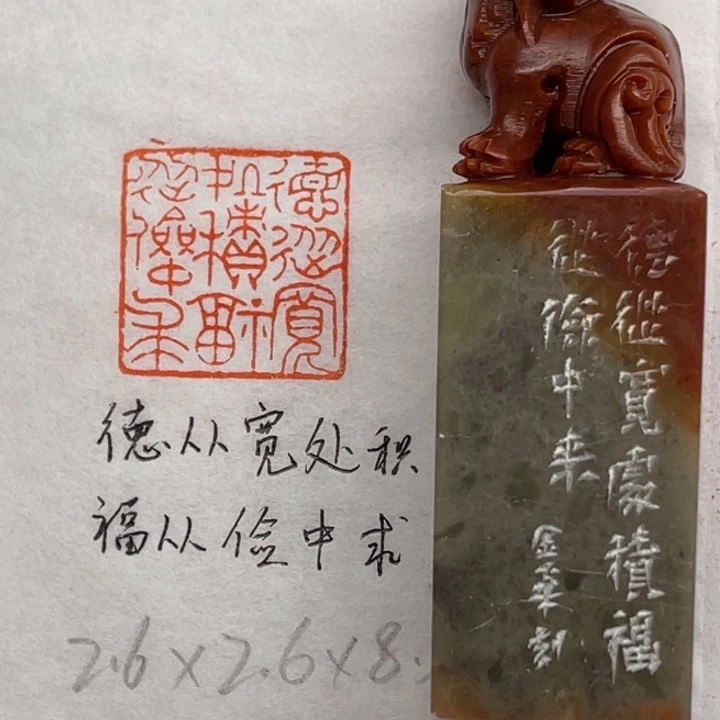 德從寬
処積福
從儉中求
德从宽处积
福从俭中求
2.6×2.6×8.
德從寬處積福
從儉中来